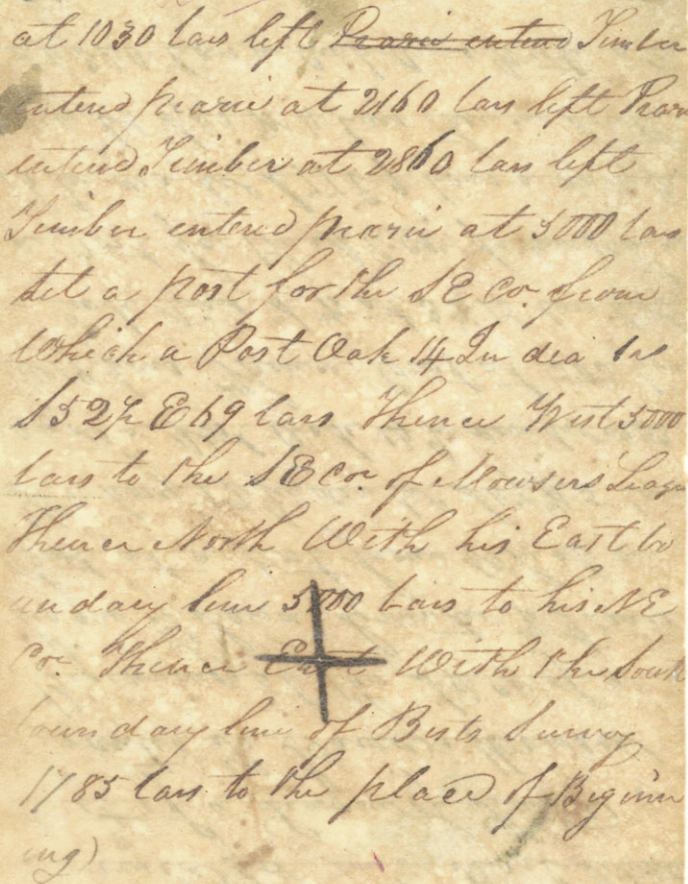 at 1030 vars left Prarie enterd Timber
enterd prarie at 2160 vars left Prar
enterd Timber at 2860 vars left
Timber enterd prarie at 5000 vas
Set a post for the SE cor from
which a Post Oak 14 In dia brs
S 52½ E 69 vars Thence West 5000
vars to the SE cor of Mowsers Leagu
Thence North With his East bo
undary line 5000 vars to his NE
Cor. Thence East With the South
boundary line of Bests Survey
1785 vars to the place of Beginn
ing)